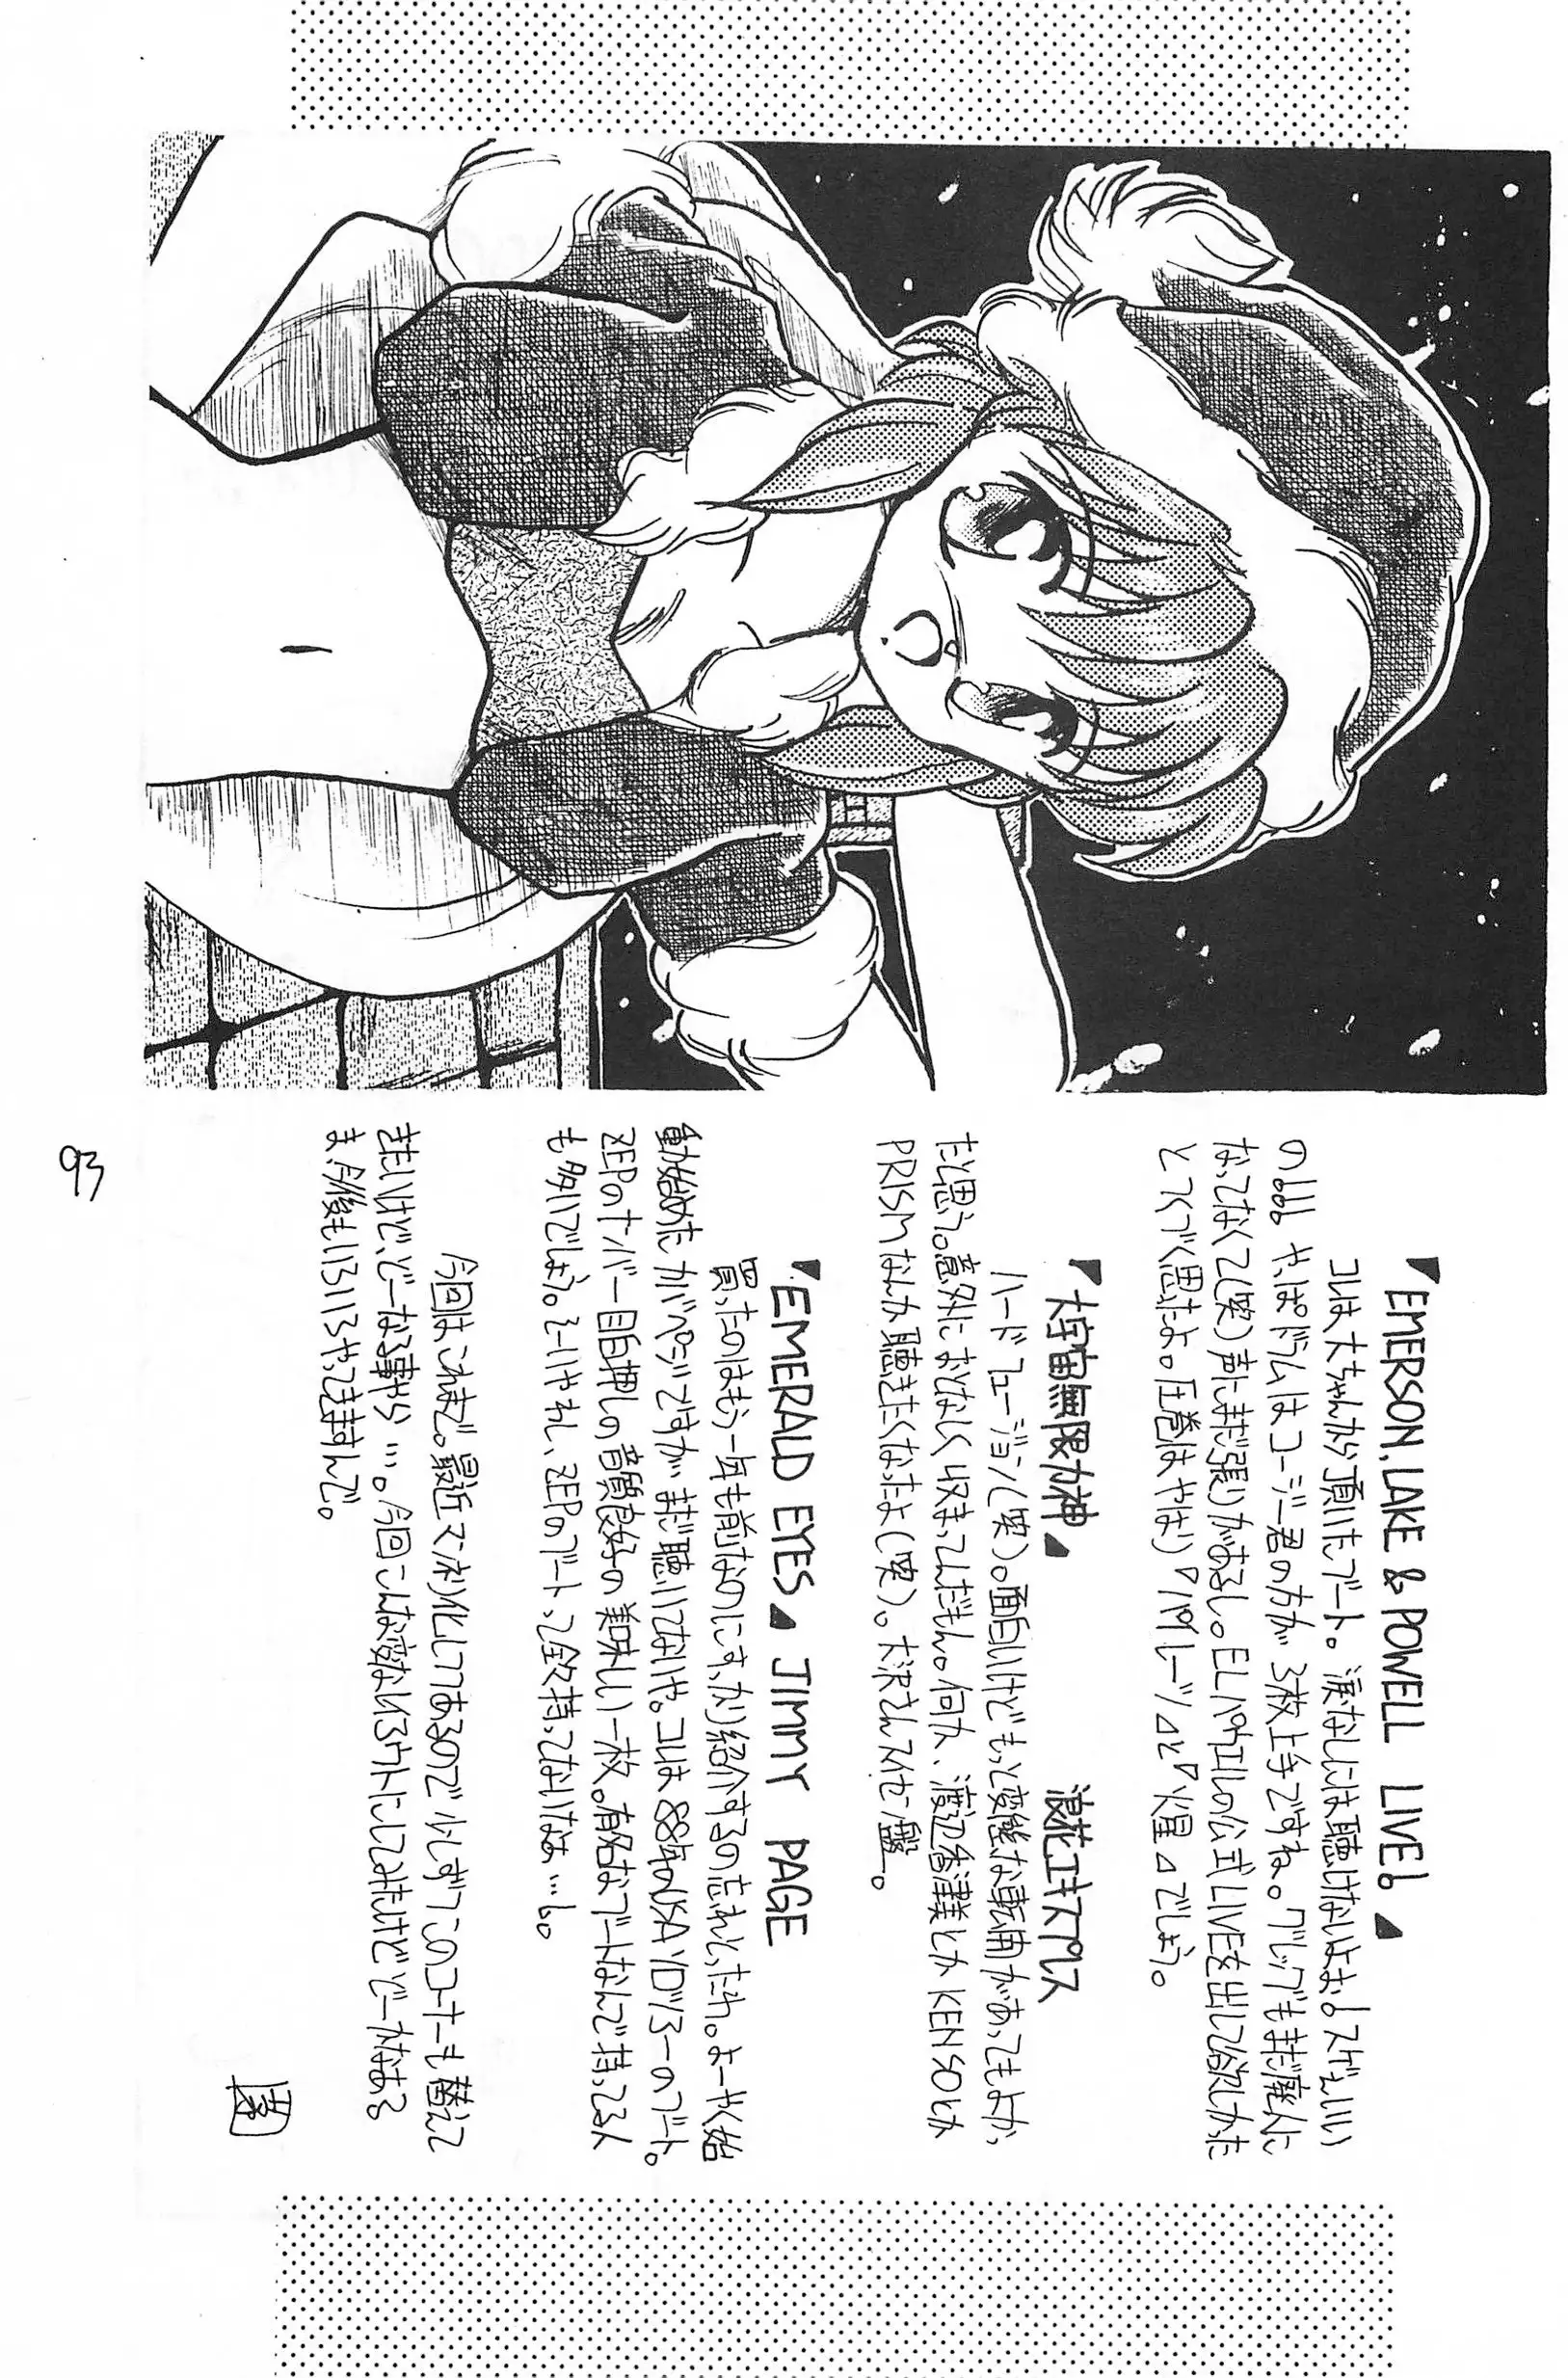 ▼EMERSON, LAKE & POWELL LIVE!▲
コレは大ちゃんから頂いたブート。涙なしには聴けないよぉ!スゲェいい
の。。。やっぱドラムはコージー君の方が3枚上手ですね。グレッグもまだ廃人に
なってなくて(笑)声にまだ張りがあるし。ELパウエルの公式LIVEを出して欲しかった
とつくづく思ったよ。圧巻はやはり『パイレーツ』と『火星』でしょう。
▼大宇宙無限力神▲ 浪花エキスプレス
ハードフュージョン(笑)。面白いけどもっと変態な転調があってもよかっ
たと思う。意外におとなしく収まってんだもん。何か、渡辺香津美とかKENSOとか
PRISMなんか聴きたくなったよ(笑)。大沢さんスイセン盤。
▼EMERALD EYES▲ JIMMY PAGE
買ったのはもう一年も前なのにすっかり紹介するの忘れとったれ。よーやく始
動始めたカバ・ペイジですがまだ聴いてないや。コレは88年のUSAソロツアーのブート。
ZEPのナンバー目白押しの音質良好の美味しい一枚。有名なブートなんで持ってる人
も多いでしょう。そーいやオレ、ZEPのブートって全々持ってないなぁ…。
今回はこれまで。最近マンネリ化してあるので少しずつこのコーナーも替えて
きたいけど、どーなる事やら…。今回こんな変なレイアウトにしてみたけどどーかなぁる
ま、今後もいろいろやってきますんで。
93